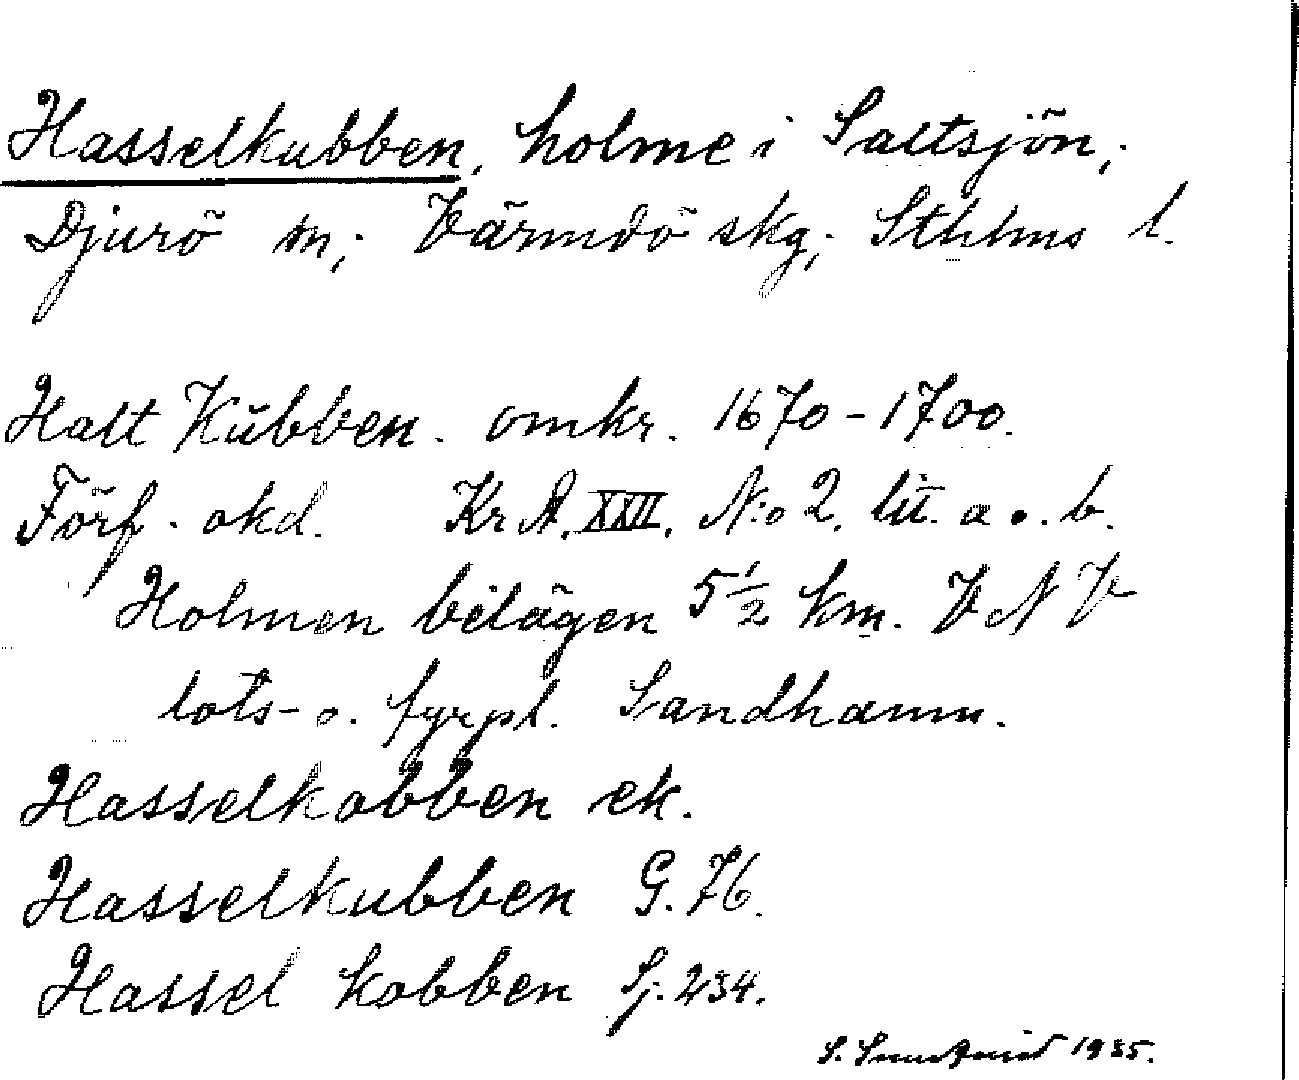 Hasselkubben, holme i Saltsjön,
Djurö sn; Värmdö skg; Sthlms l.
Halt Kŭbben. omkr. 1670-1700.
Förf. okd. Kr A. XXII. N:o 2. lit. a o. b.
Holmen belägen 5 1/2 km. V N V
lots- o. fyrpl. Sandhamn.
Hasselkobben ek.
Hasselkubben G. 76.
Hassel kobben Sj. 234.
S. 1935.